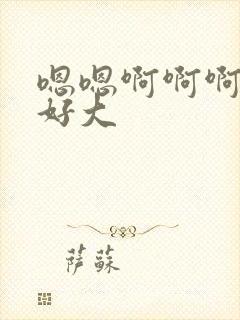 嗯嗯啊啊啊
好大
萨蘇